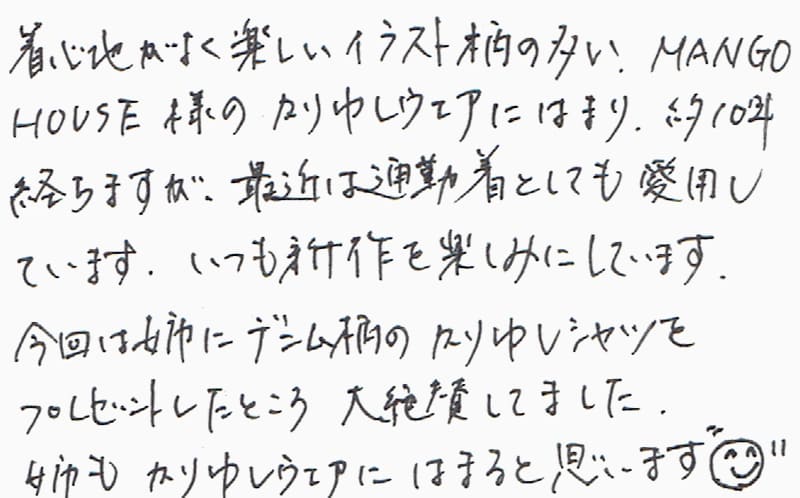 着心地がよく楽しいイラスト柄の多い、MANGO
HOUSE 様の かりゆしウェアにはまり、約10年
経ちますが、最近は通勤着としても愛用し
ています。いつも新作を楽しみにしています。
今回は姉にデニム柄の かりゆしシャツを
プレゼントしたところ 大絶賛してました。
姉も かりゆしウェアに はまると思います